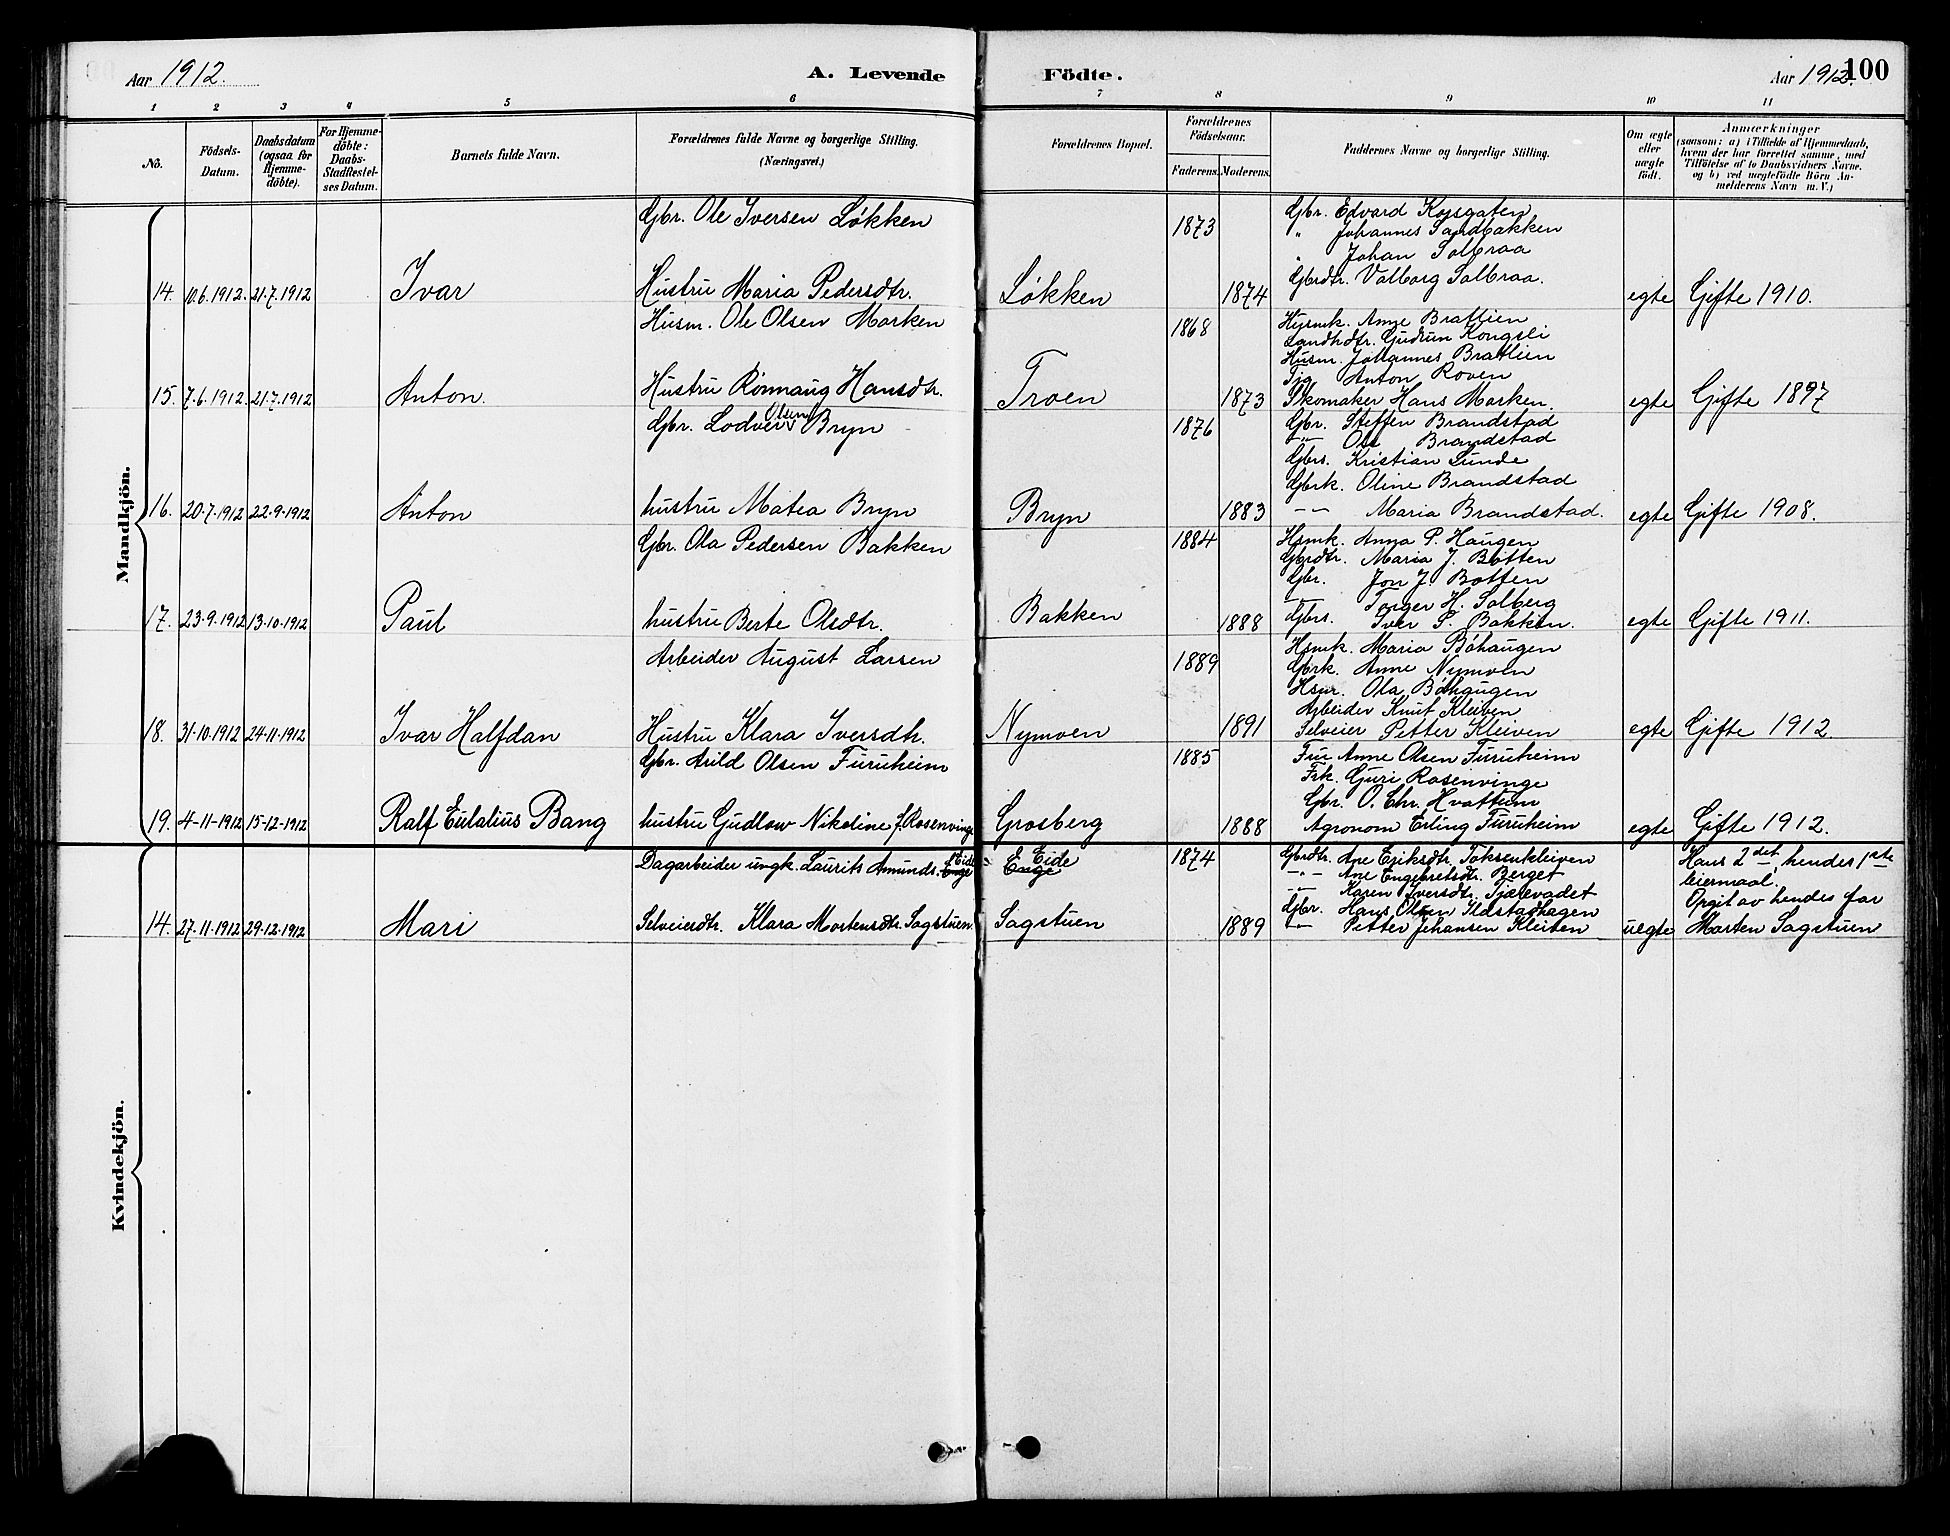 Aar 1912.
A. Levende
Födte.
Aar 1912.
100
1 2 3 4 5 6 7 8 9 10 11
No.
Födsels-
Datum.
Daabsdatum
(ogsaa for
Hjemme-
döbte).
For Hjemme-
döbte:
Daabs-
Stadfæstel-
ses Datum.
Barnets fulde Navn.
Forældrenes fulde Navne og borgerlige Stilling.
(Næringsvei.)
Forældrenes Bopæl.
Forældrenes
Födselsaar.
Faderens. Moderens.
Faddernes Navne og borgerlige Stilling.
Om ægte
eller
uægte
födt.
Anmærkninger
(saasom: a) i Tilfælde af Hjemmedaab,
hvem der har forrettet samme, med
Tilföielse af to Daabsvidners Navne.
og b) ved uægtefödte Börn An-
melderens Navn m. V.)
Mandkjön.
Gbr. Ole Iversen Løkken
1873
Gbr. Edvard Korsgaten
" Johannes Sandbakken
" Johan Solbraa
Gbrdtr. Valborg Solbraa.
14. 10.6.1912. 21.7.1912 Ivar Hustru Maria Pedersdtr. Løkken 1874 egte Gifte 1910.
Husm. Ole Olsen Marken
1868
Husmk. Anne Bratlien
Landhdtr. Gudrun Kongsli
Husm. Johannes Bratlien
Tjg Anton Roven
15. 7.6.1912. 21.7.1912 Anton. Hustru Rønnaug Hansdtr. Troen 1873 Skomaker Hans Marken. egte Gifte 1897
Gbr. Lodver Olsen Bryn
1876
Gbr. Steffen Brandstad
-"- Ole Brandstad
Gbrs. Kristian Lunde
Gbrk. Oline Brandstad
16. 20.7.1912 22.9.1912 Anton hustru Matea Bryn Bryn 1883 -"- Maria Brandstad. egte Gifte 1908.
Gbr. Ola Pedersen Bakken
1884
Hsmk. Anna P. Haugen
Gbrdtr. Maria J. Botten
Gbr. Jon J. Botten
-"- Torger H. Solberg
17. 23.9.1912 13.10.1912 Paul hustru Berte Olsdtr. Bakken 1888 Gbrs. Iver P. Bakken. egte Gifte 1911.
Arbeider August Larsen
1889
Hsmk. Maria Bøhaugen
Gbrk. Anne Nymoen
Hsmr. Ola Bøhaugen
Arbeider Knut Kleiven
18. 31.10.1912 24.11.1912 Ivar Halfdan Hustru Klara Iversdtr. Nymoen 1891 Selveier Petter Kleiven egte Gifte 1912.
Gbr. Arild Olsen Furuheim
1885
Fru Anne Olsen Furuheim
Frk. Guri Rosenvinge
Gbr. O. Chr. Hvattum
19. 4-11-1912 15-12-1912 Ralf Eulalius Bang hustru Gudlow Nikoline f. Rosenvinge Grosberg 1888 Agronom Erling Furuheim egte Gifte 1912.
Kvindekjön.
Dagarbeider ungk. Laurits Amunds. Eide
Eide
1874
Gbrdtr. Ane Eriksdtr. Toksenkleiven
-"- Ane Engebretsdtr. Berget
-"- Karen Iversdtr. Tjælevadet
Gbr. Hans Olsen Ildstadhagen
Hans 2det, hendes 1ste
leiermaal.
Opgit av hendes far
14. 27.11.1912 29.12.1912 Mari Selveierdtr. Klara Mortensdtr. Sagstuen Sagstuen 1889 -"- Petter Johansen Kleiven uegte Morten Sagstuen